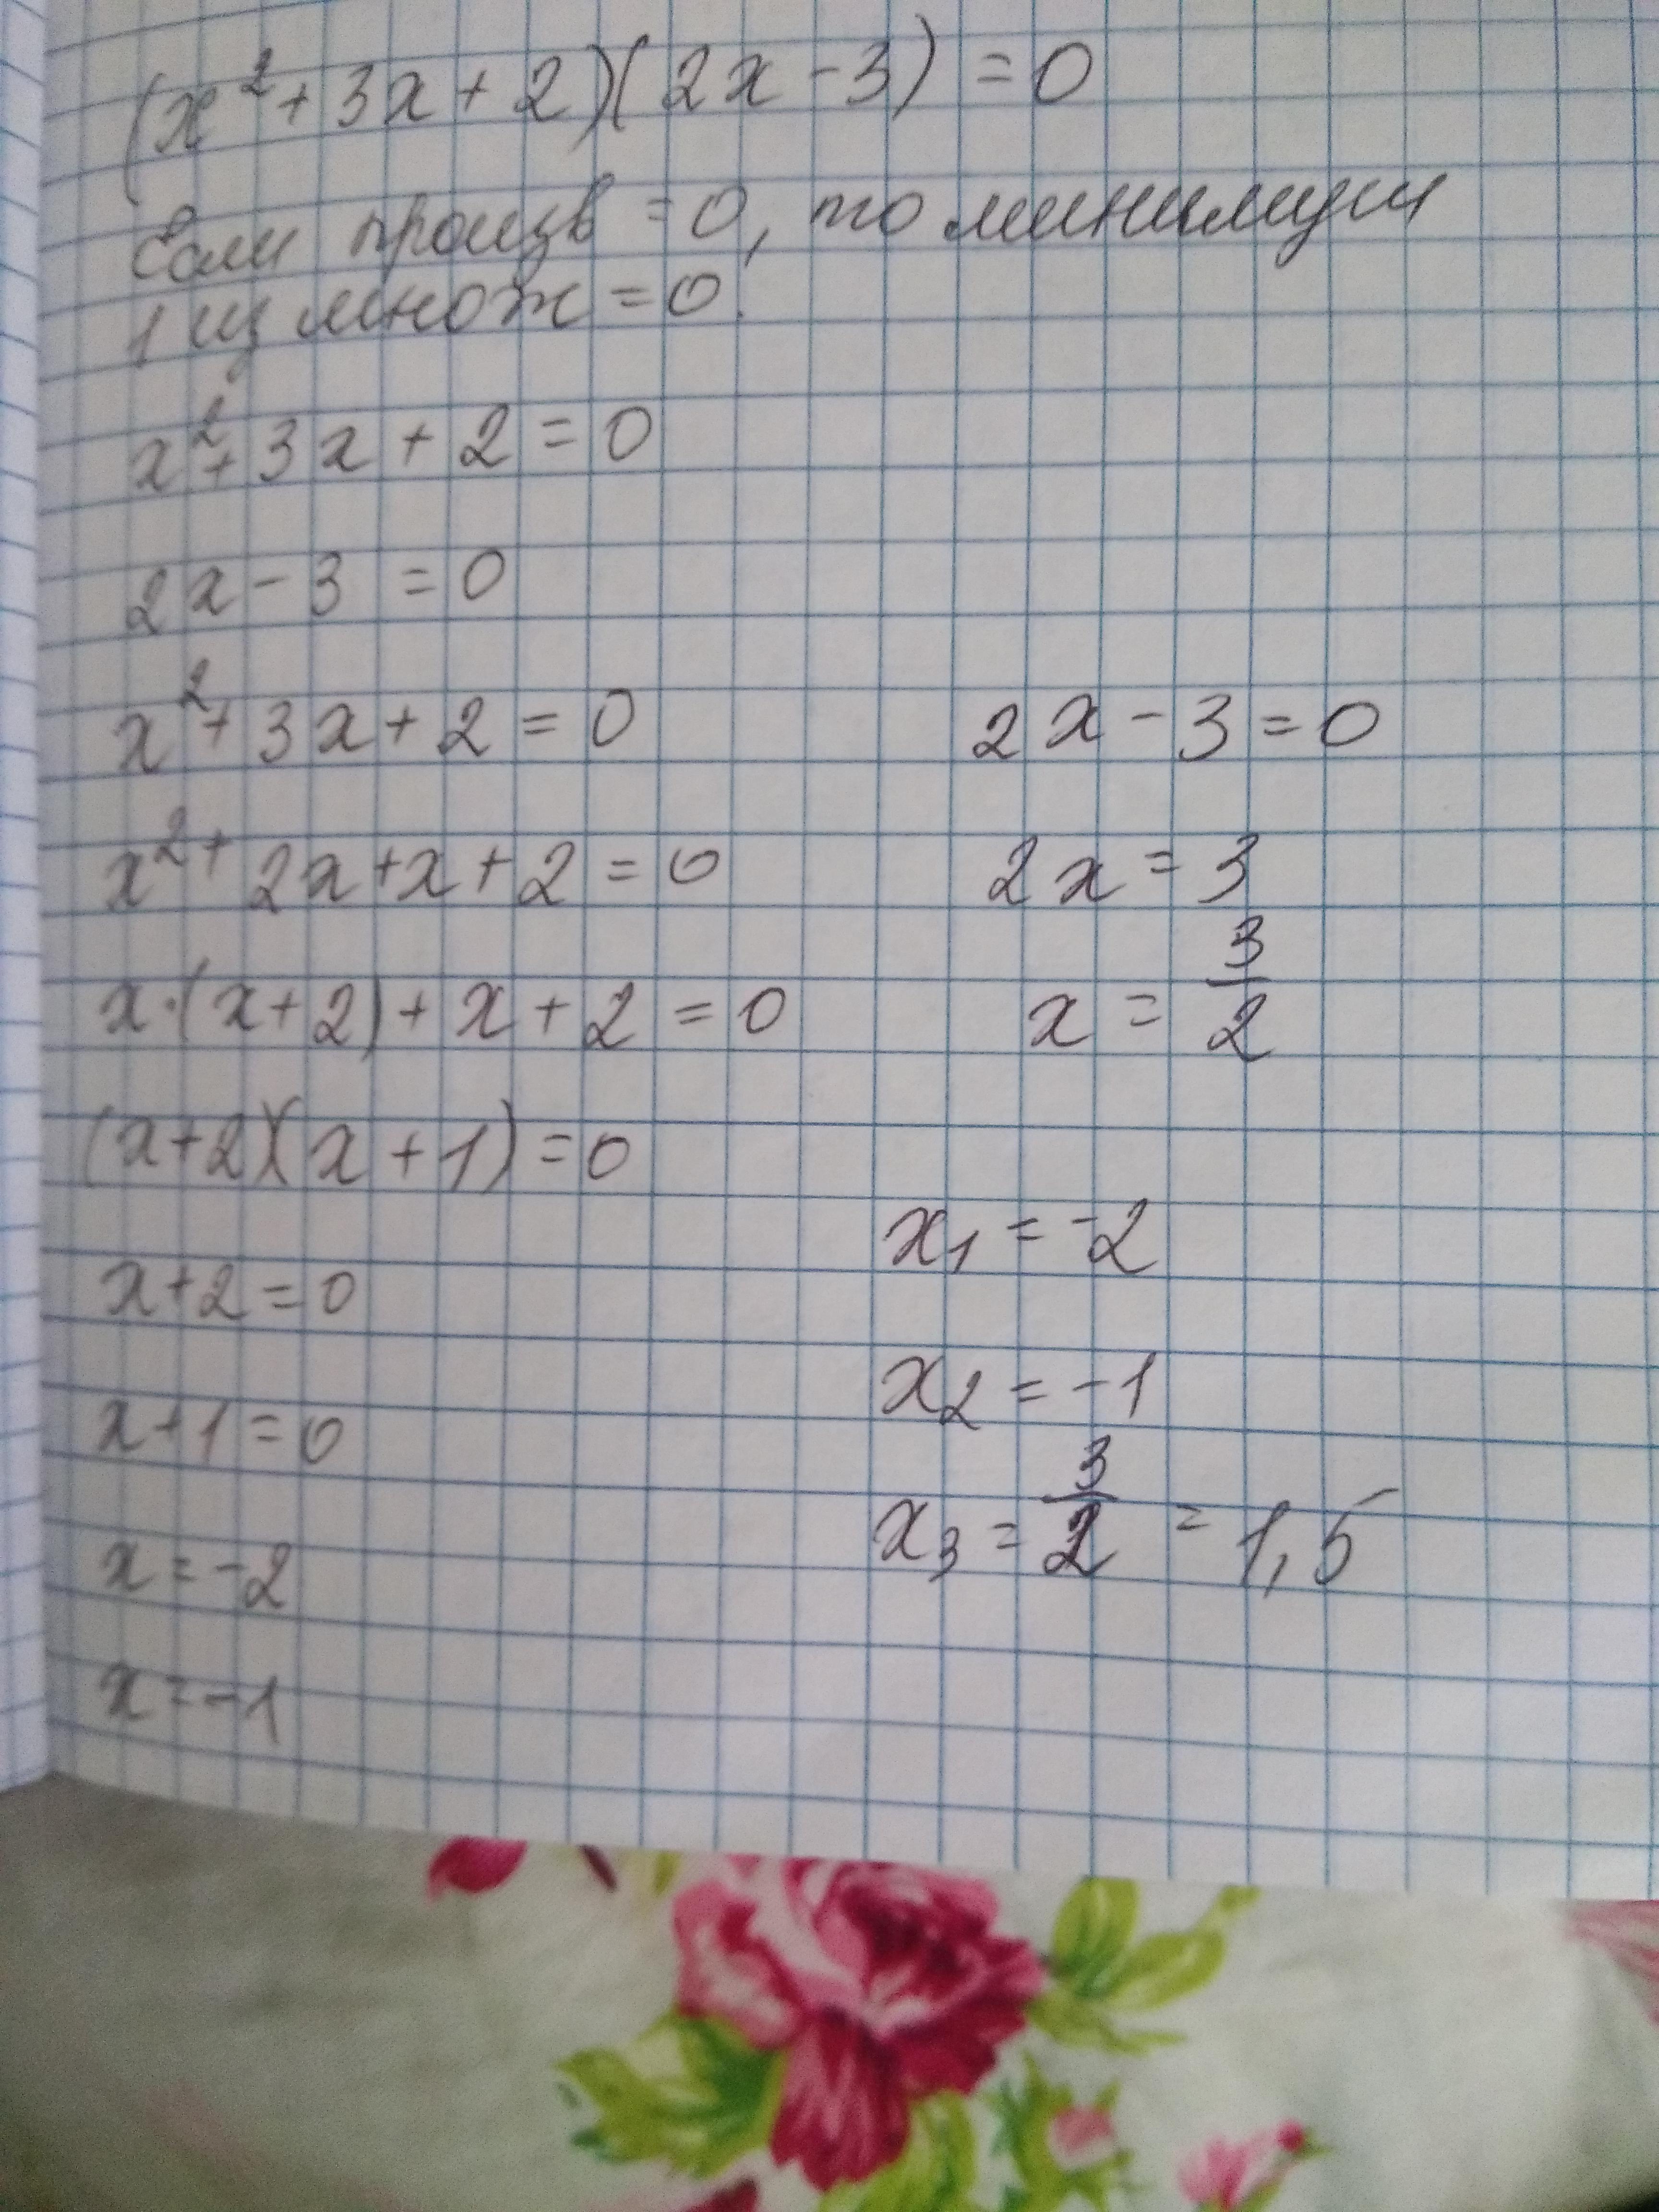 (x²+3x+2)(2x-3)=0
Если произв =0, то минимум
1 из множ =0.
x²+3x+2=0
2x-3=0
x²+3x+2=0
x²+2x+x+2=0
x·(x+2)+x+2=0
(x+2)(x+1)=0
x+2=0
x+1=0
x=-2
x=-1
2x-3=0
2x=3
x=3/2
x₁=-2
x₂=-1
x₃=3/2=1,5